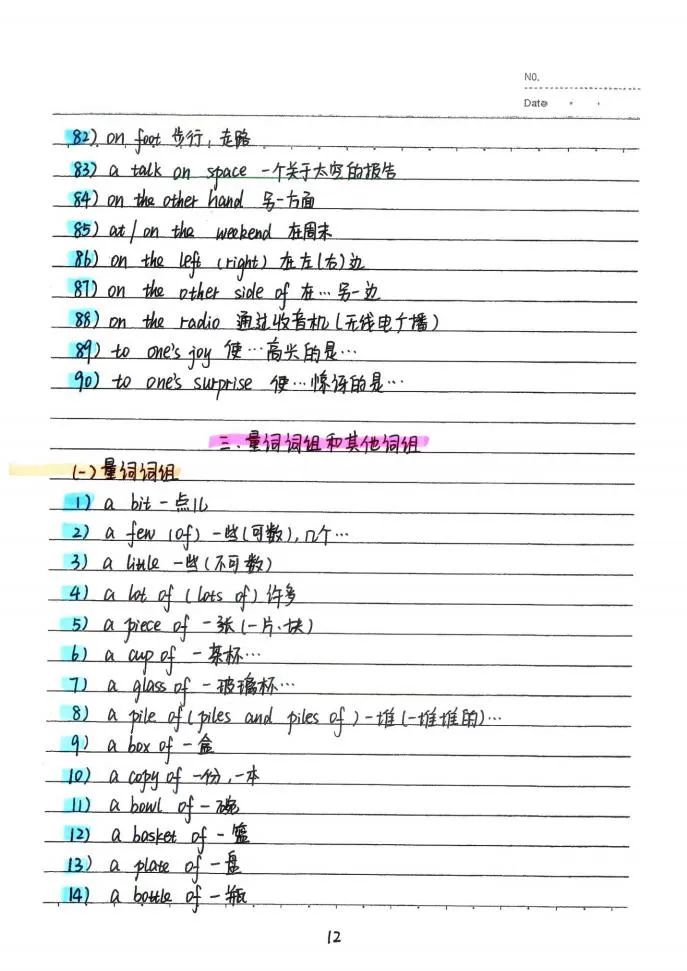 NO.
Date
82) on foot 步行,走路
83) a talk on space 一个关于太空的报告
84) on the other hand 另一方面
85) at/on the weekend 在周末
86) on the left (right) 在左(右)边
87) on the other side of 在…另一边
88) on the radio 通过收音机(无线电广播)
89) to one's joy 使…高兴的是…
90) to one's surprise 使…惊讶的是…
三、量词词组和其他词组
(一)量词词组
1) a bit 一点儿
2) a few (of) 一些(可数),几个…
3) a little 一些(不可数)
4) a lot of (lots of) 许多
5) a piece of 一张(一片、块)
6) a cup of 一茶杯…
7) a glass of 一玻璃杯…
8) a pile of (piles and piles of) 一堆(一堆堆的)…
9) a box of 一盒
10) a copy of 一份,一本
11) a bowl of 一碗
12) a basket of 一篮
13) a plate of 一盘
14) a bottle of 一瓶
12